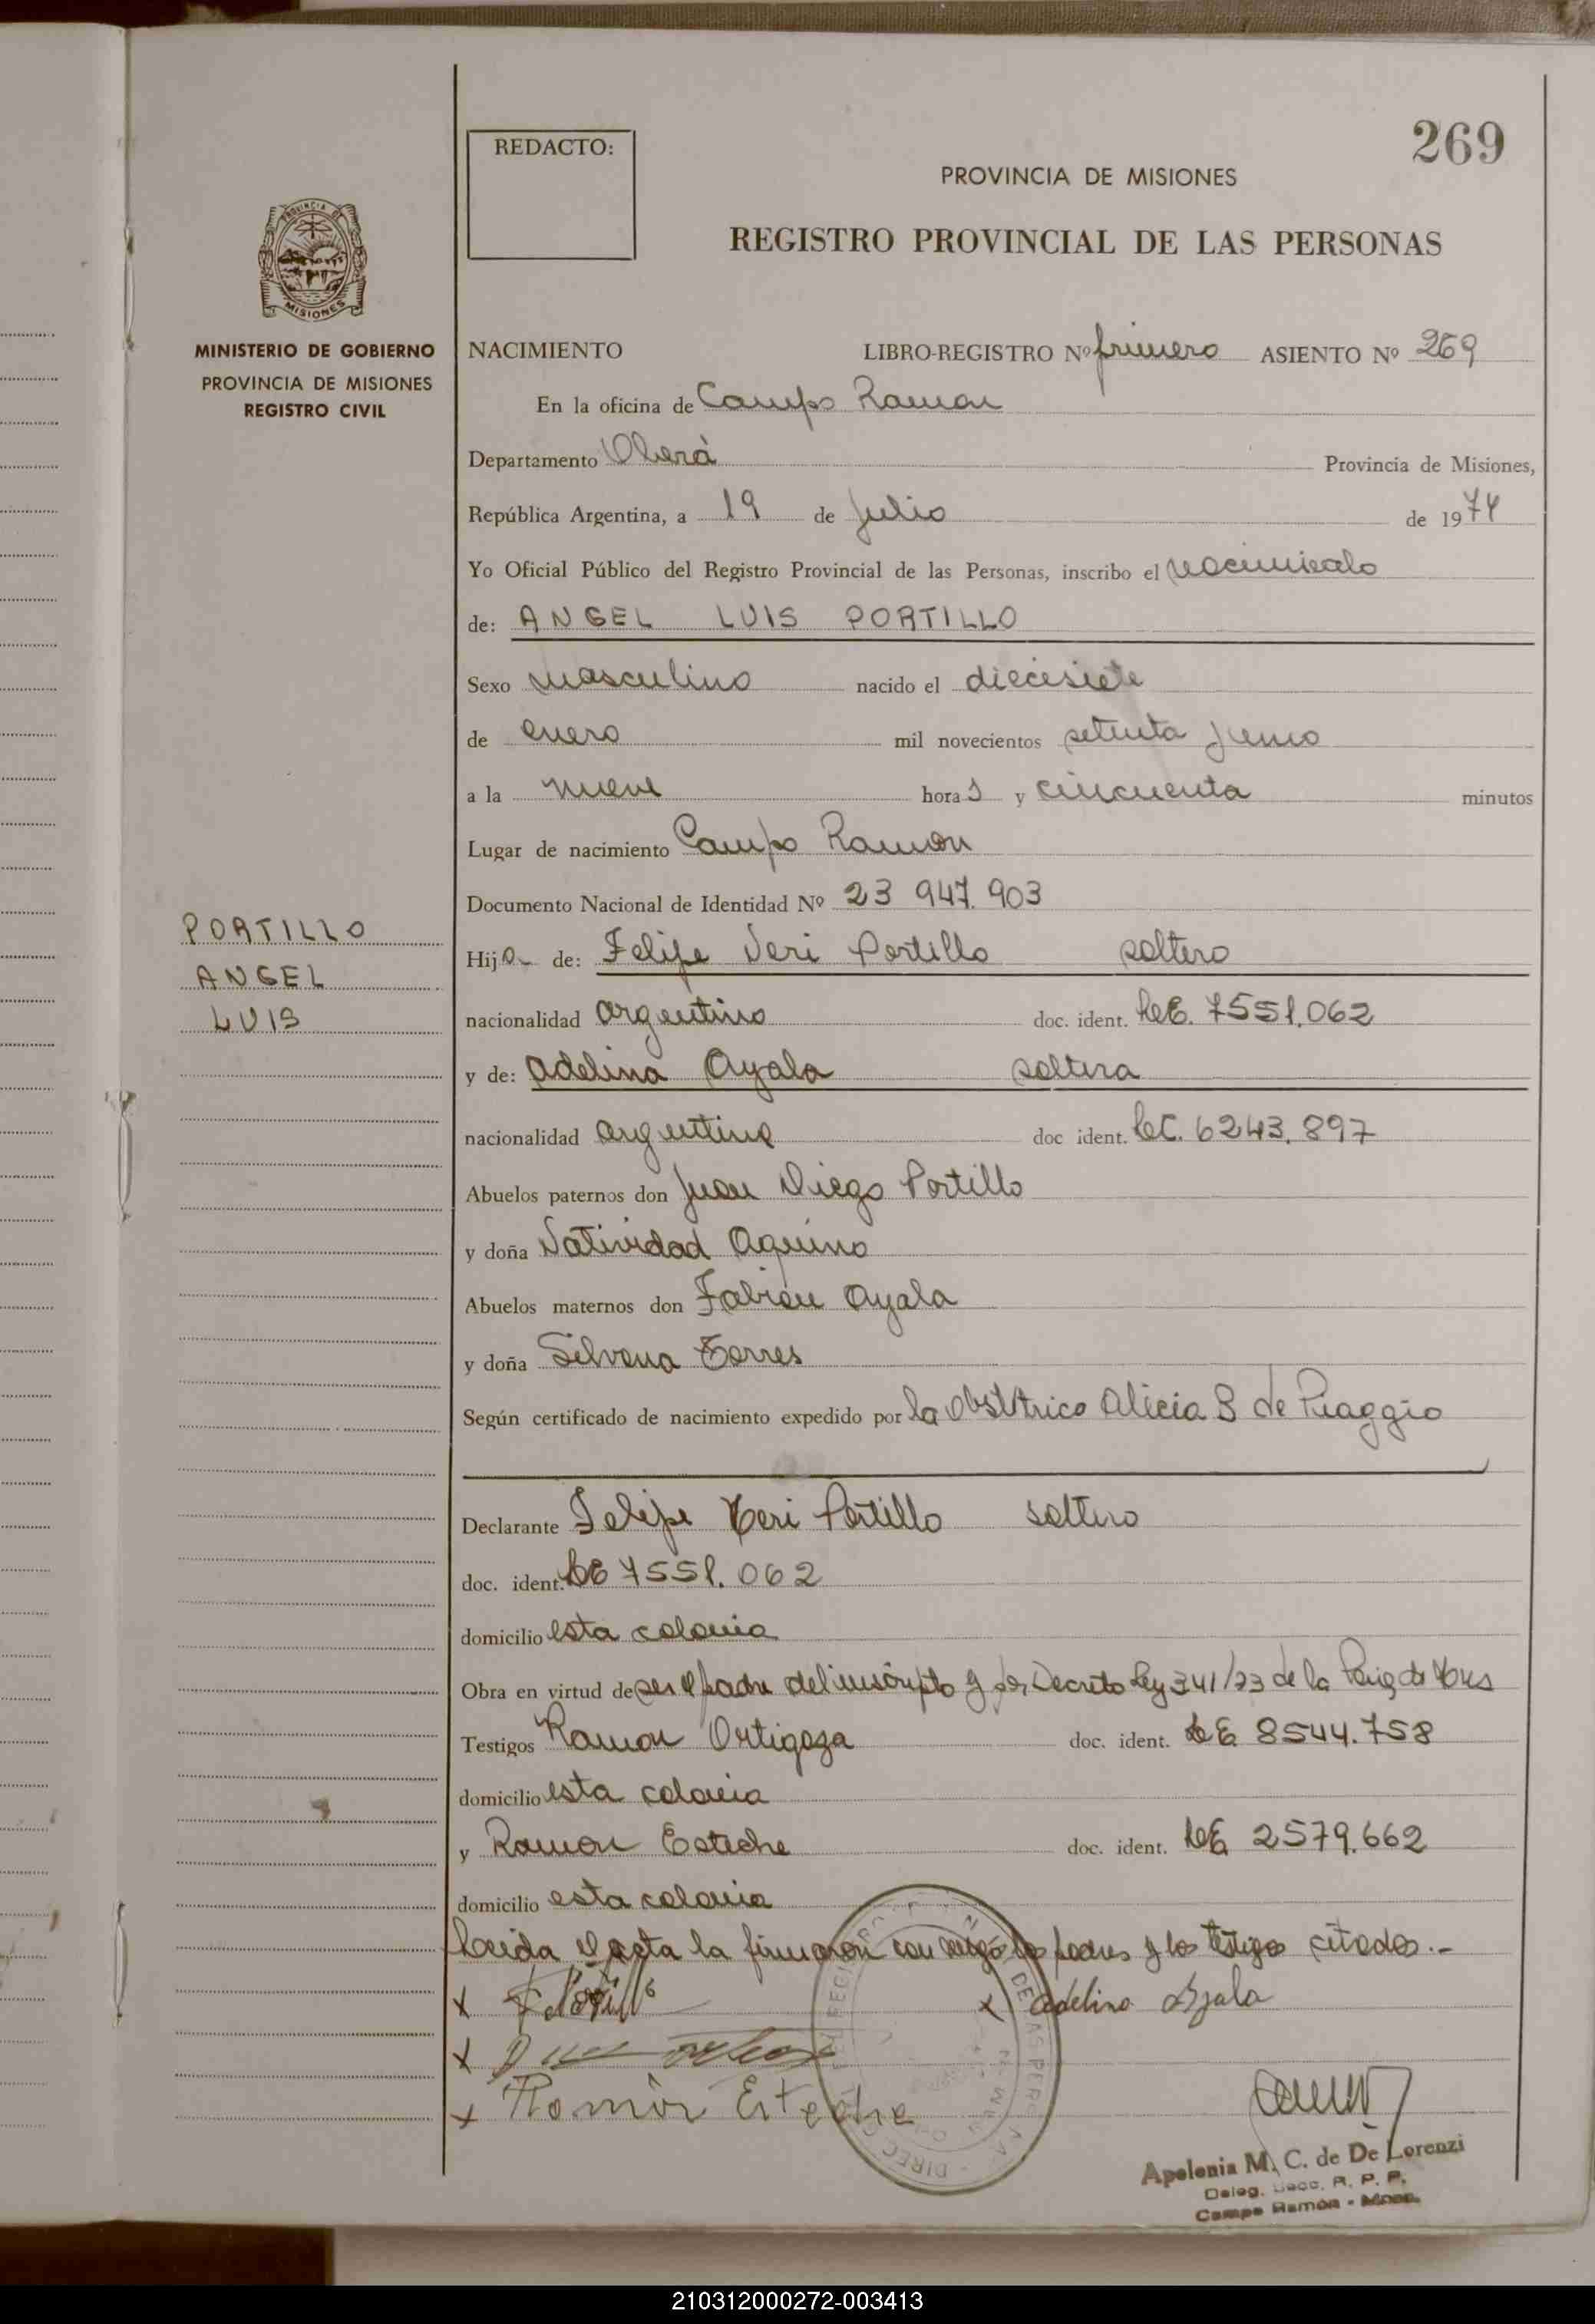 269
REDACTO:
PROVINCIA DE MISIONES
REGISTRO PROVINCIAL DE LAS PERSONAS
PROVINCIA DE
MISIONES
MINISTERIO DE GOBIERNO
PROVINCIA DE MISIONES
REGISTRO CIVIL
NACIMIENTO LIBRO-REGISTRO Nº primero ASIENTO Nº 269
En la oficina de Campo Ramon
Departamento Oberá Provincia de Misiones,
República Argentina, a 19 de julio de 1974
Yo Oficial Público del Registro Provincial de las Personas, inscribo el nacimiento
de: ANGEL LUIS PORTILLO
Sexo masculino nacido el diecisiete
de enero mil novecientos setenta y uno
a la nueve horas y cincuenta minutos
Lugar de nacimiento Campo Ramon
Documento Nacional de Identidad Nº 23 947.903
PORTILLO
ANGEL
LUIS
Hijo de: Felipe Neri Portillo soltero
nacionalidad argentino doc. ident. LE. 7551.062
y de: Adelina Ayala soltera
nacionalidad argentina doc ident. LC. 6243.897
Abuelos paternos don Juan Diego Portillo
y doña Natividad Aquino
Abuelos maternos don Fabian Ayala
y doña Silvana Torres
Según certificado de nacimiento expedido por la Obstétrica Alicia B de Piaggio
Declarante Felipe Neri Portillo soltero
doc. ident. LE 7551.062
domicilio esta colonia
Obra en virtud de ser el padre del inscripto y por Decreto Ley 341/73 de la de
Testigos Ramon Ortigoza doc. ident. LE 8544.758
domicilio esta colonia
y Ramon Esteche doc. ident. LE 2579.662
domicilio esta colonia
Leida el acta la firmaron con migo los padres y los testigos citados.-
x x Adelina Ayala
x
x Ramón Esteche
Apolonia M. C. de De Lorenzi
Deleg. Secc. R. P. P.
Campo Ramón - Mnes.
210312000272-003413